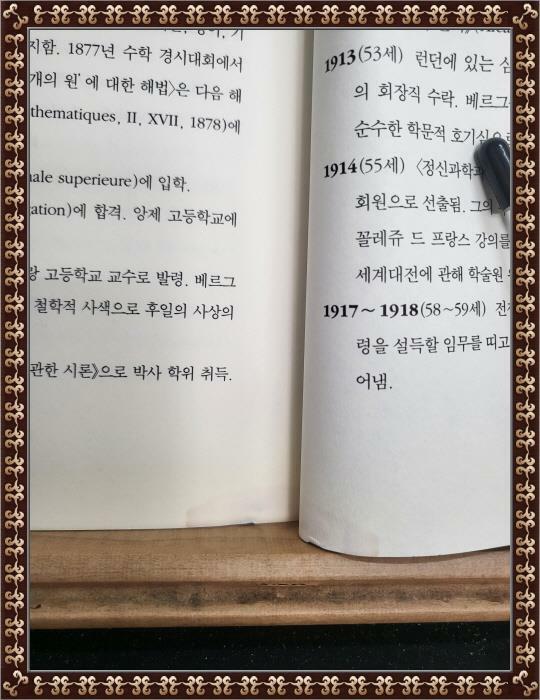 지함. 1877년 수학 경시대회에서
개의 원'에 대한 해법〉은 다음 해
thematiques, II, XVII, 1878)에
nale superieure)에 입학.
ration)에 합격. 앙제 고등학교에
고등학교 교수로 발령. 베르그
철학적 사색으로 후일의 사상의
관한 시론》으로 박사 학위 취득.
1913(53세) 런던에 있는
의 회장직 수락. 베르그
순수한 학문적 호기심으로
1914(55세) 〈정신과학과
회원으로 선출됨. 그의
꼴레쥬 드 프랑스 강의를
세계대전에 관해 학술원
1917~1918(58~59세)
령을 설득할 임무를 띠고
어냄.